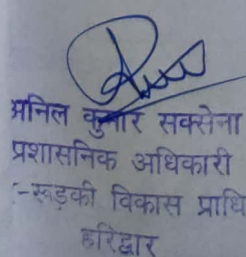 अनिल कुमार सक्सेना
प्रशासनिक अधिकारी
:-रूड़की विकास प्राधि
हरिद्वार